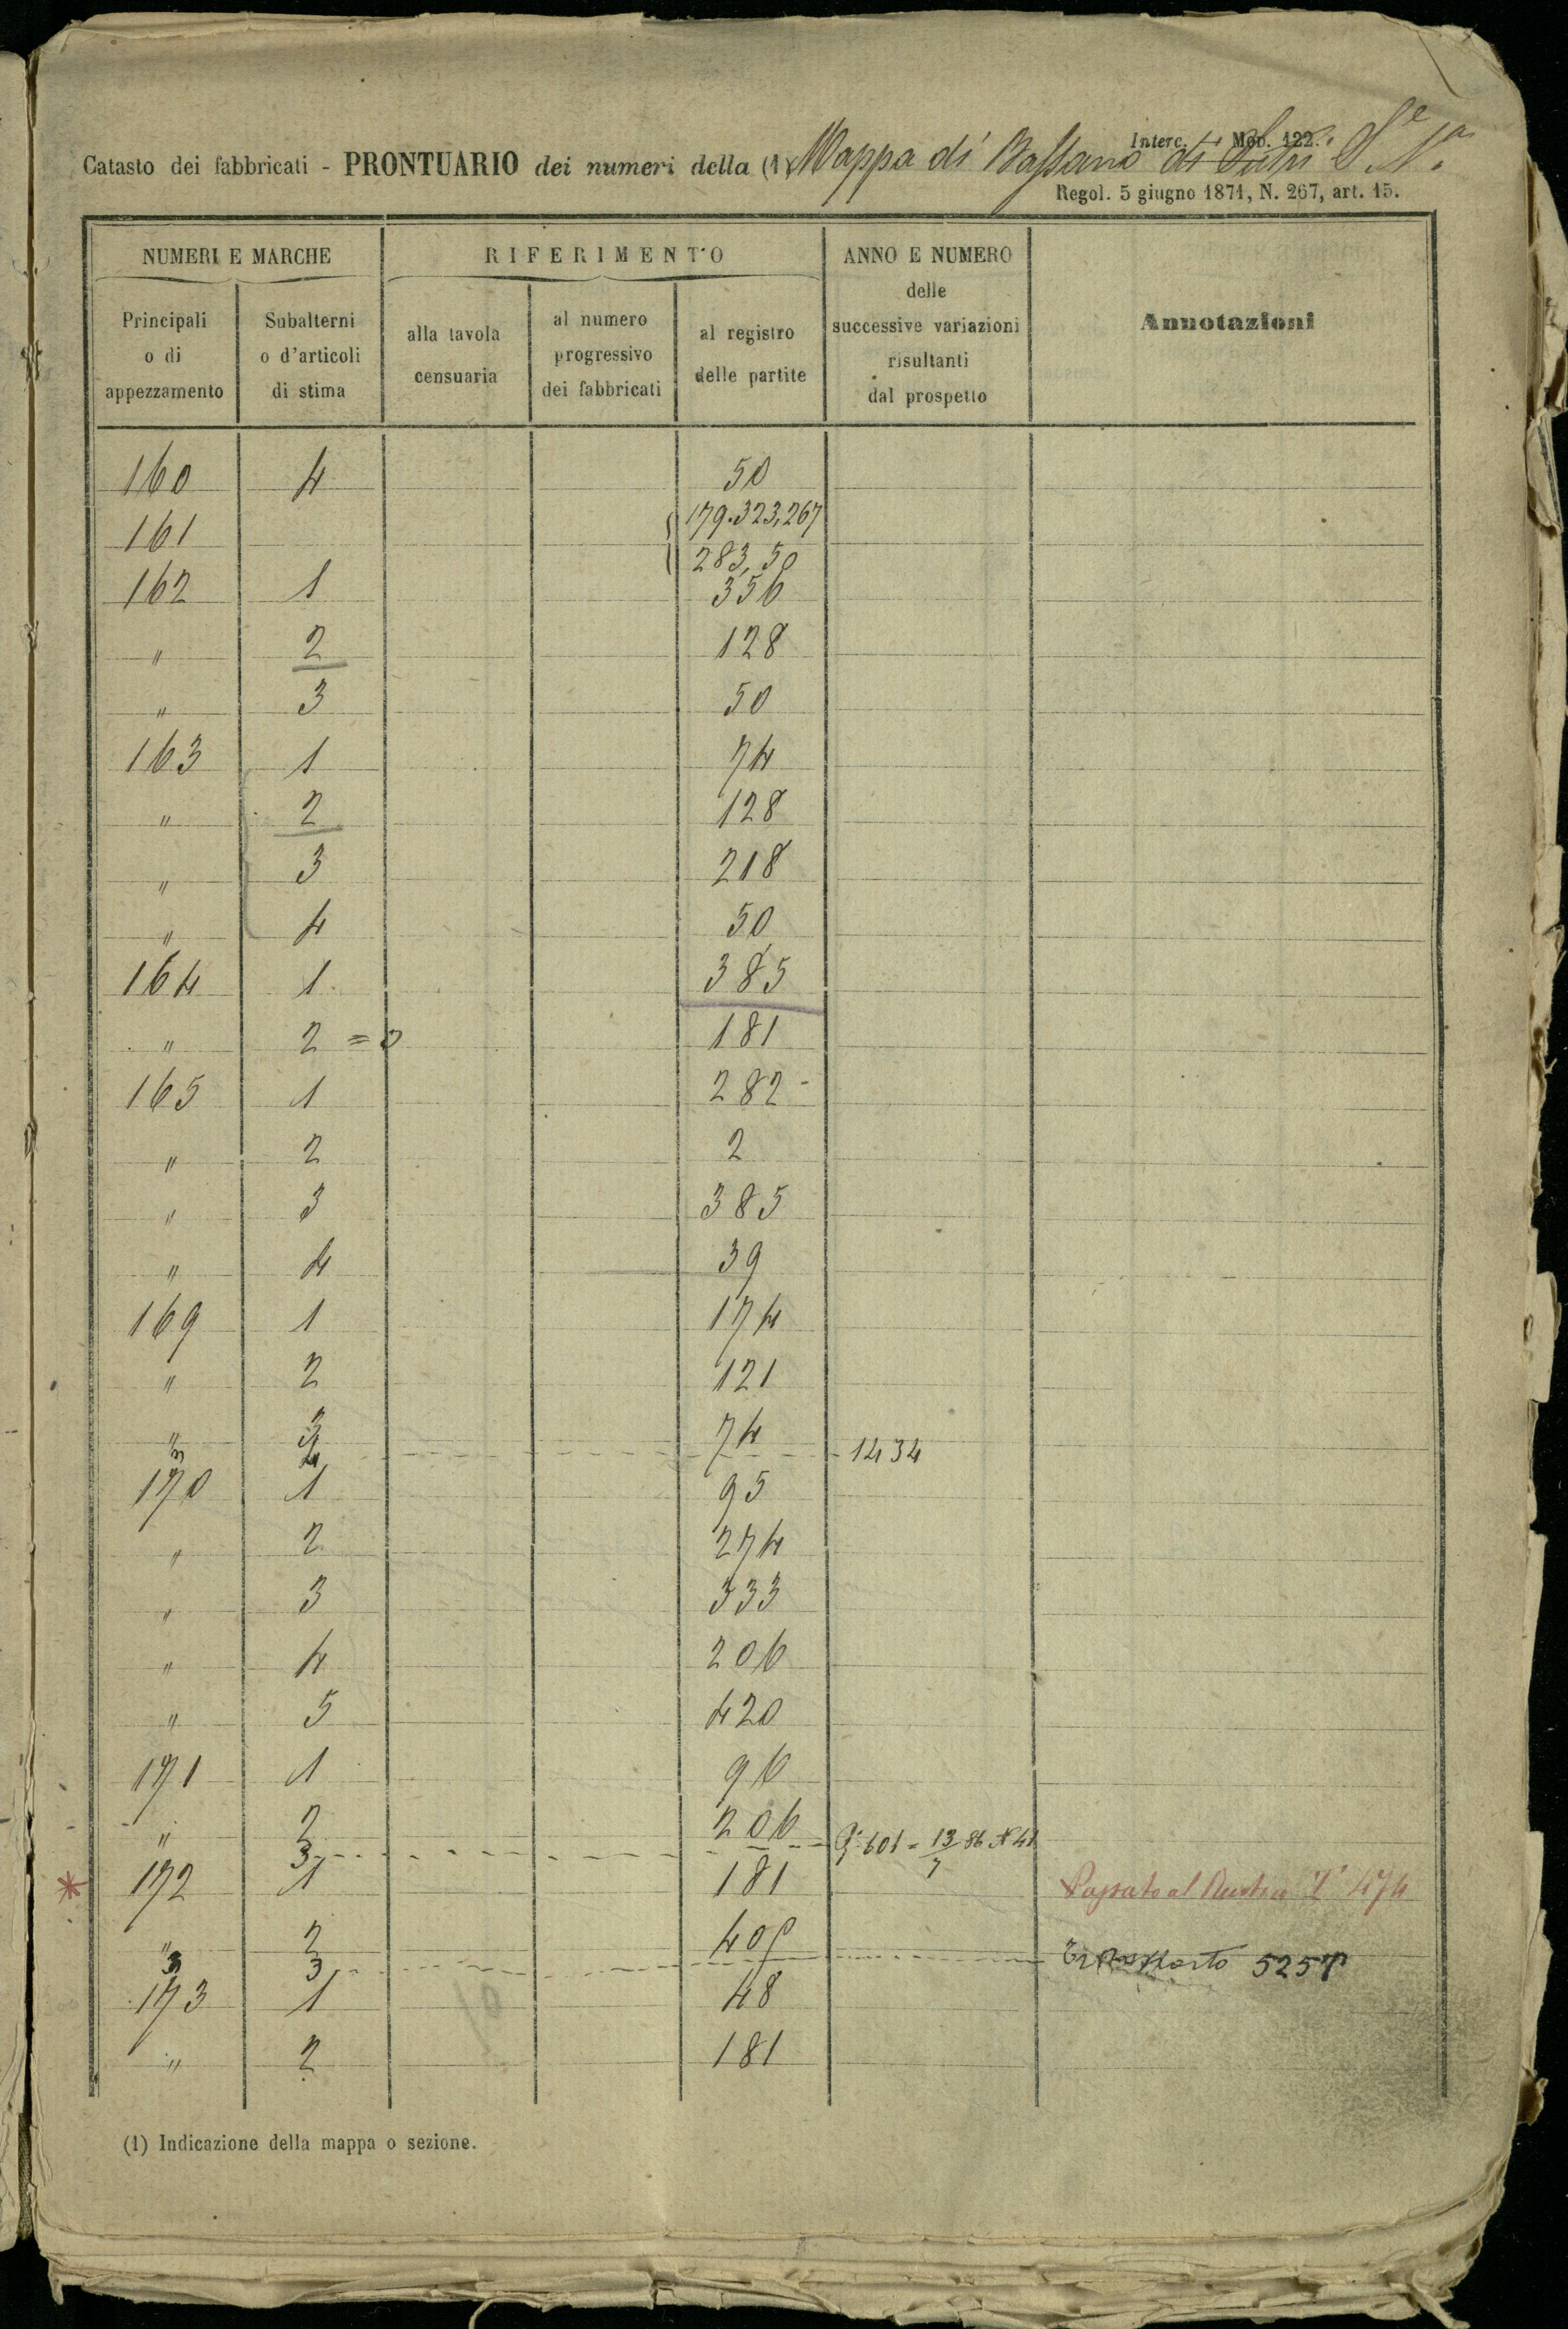 Interc. Mod. 122.
Catasto dei fabbricati - PRONTUARIO dei numeri della (1) Mappa di Bassano di Sutri
Regol. 5 giugno 1871, N. 267, art. 15.
NUMERI E MARCHE RIFERIMENTO ANNO E NUMERO delle successive variazioni risultanti dal prospetto Annotazioni
Principali o di appezzamento Subalterni o d'articoli di stima alla tavola censuaria al numero progressivo dei fabbricati al registro delle partite
160 4 50
161 179.323,267
283,50
162 1 356
" 2 128
" 3 50
163 1 74
" 2 128
" 3 218
" 4 50
164 1 385
" 2 = 181
165 1 282
" 2 2
" 3 385
" 4 39
169 1 174
" 2 121
" 3 74
4 1434
170 1 95
" 2 274
" 3 333
" 4 206
" 5 420
171 1 96
" 2 206
3 601 = 13/7 86 N 41
* 172 1 181 Passato al 474
" 2
3 3 5257
173 1 48
" 2 181
(1) Indicazione della mappa o sezione.